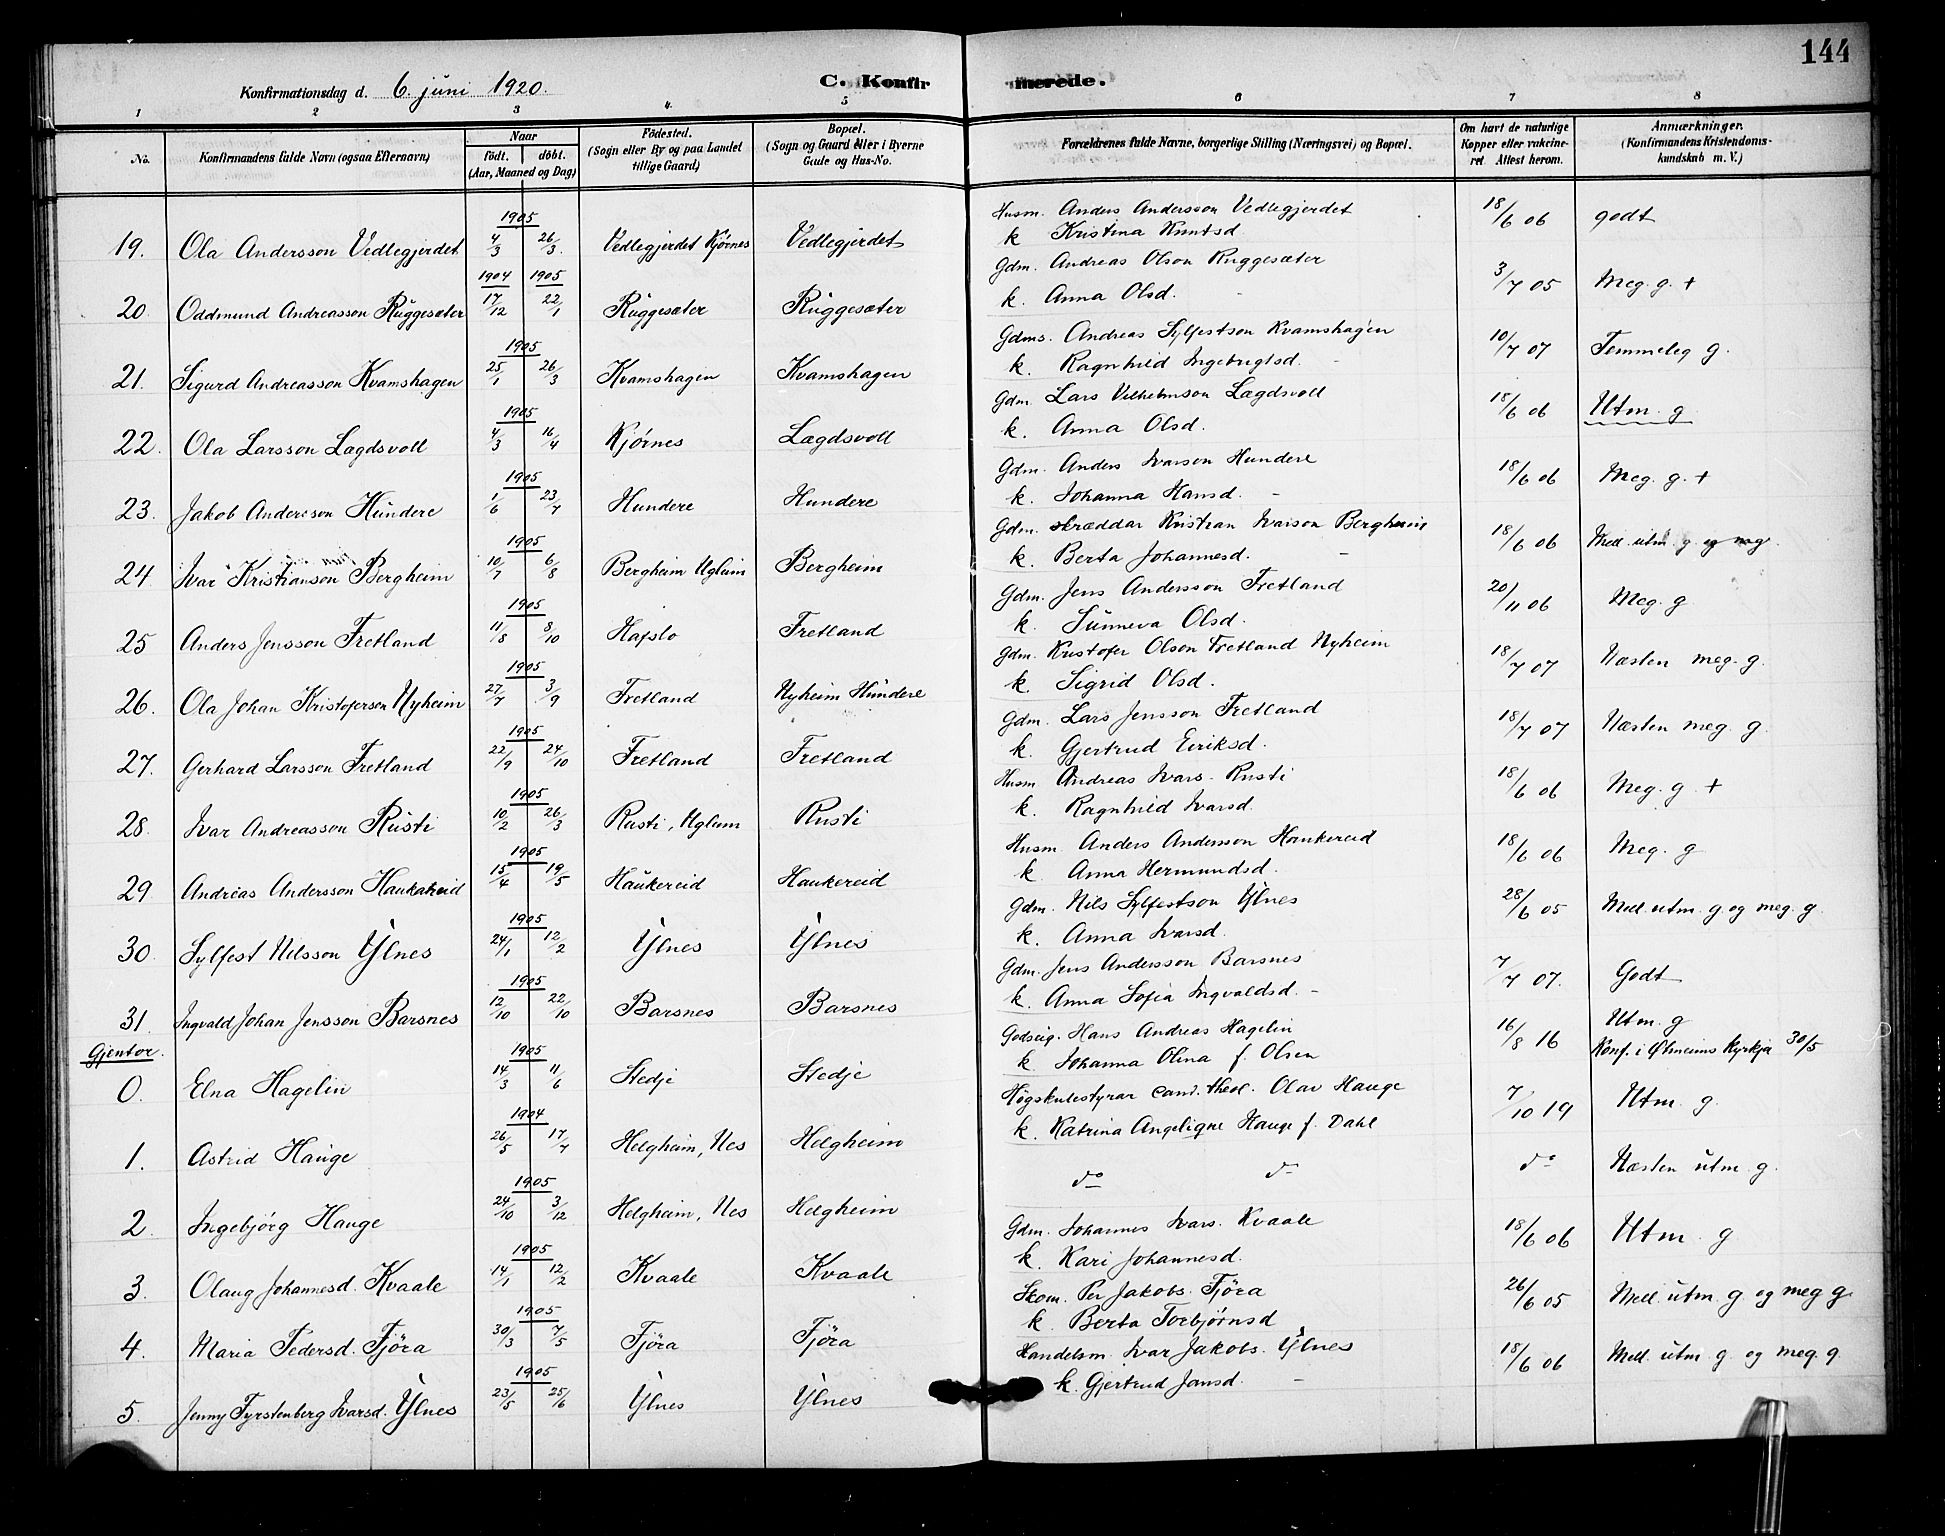 144
Konfirmationsdag d. 6. juni 1920.
C. Konfirmerede.
1 2 3 4 5 6 7 8
No. Konfirmandens fulde Navn (ogsaa Efternavn) Naar født. døbt. (Aar, Maaned og Dag) Fødested. (Sogn eller By og paa Landet tillige Gaard) Bopæl. (Sogn og Gaard eller i Byerne Gade og Hus-No. Forældrenes fulde Navne, borgerlige Stilling (Næringsvei) og Bopæl. Om havt de naturlige Kopper eller vakcineret Attest herom. Anmærkninger. (Konfirmandens Kristendomskundskab m. V.)
19. Ola Andersson Vedlegjerdet 1905 4/3 26/3 Vedlegjerdet Kjørnes Vedlegjerdet Husm. Anders Andersson Vedlegjerdet k Kristina Knutsd 18/6 06 godt
20. Oddmund Andreasson Ruggesæter 1904 17/12 1905 22/1 Ruggesæter Ruggesæter Gdm. Andreas Olson Ruggesæter k. Anna Olsd. 3/7 05 Meg. g. +
21. Sigurd Andreasson Kvamshagen 1905 25/1 26/3 Kvamshagen Kvamshagen Gdms. Andreas Sylfestson Kvamshagen k. Ragnhild Ingebrigtsd. 10/7 07 Temmeleg g.
22. Ola Larsson Lægdsvoll 1905 4/3 16/4 Kjørnes Lægdsvoll Gdm. Lars Vilhelmson Lægdsvoll k. Anna Olsd. 18/6 06 Utm. g
23. Jakob Andersson Hundere 1905 1/6 23/7 Hundere Hundere Gdm. Anders Ivarson Hundere k. Johanna Hansd. 18/6 06 Meg. g. +
24. Ivar Kristianson Bergheim 1905 10/7 6/8 Bergheim Uglum Bergheim Gdm. skræddar Kristian Ivarson Bergheim k. Berta Johannesd. 18/6 06 Mell. utm. g og meg.
25 Anders Jensson Fretland 1905 11/8 8/10 Hafslo Fretland Gdm. Jens Andersson Fretland k. Sunneva Olsd. 20/11 06 Meg. g
26. Ola Johan Kristoferson Nyheim 1905 27/7 3/9 Fretland Nyheim Hundere Gdm. Kristofer Olson Fretland Nyheim k. Sigrid Olsd. 18/7 07 Næsten meg. g.
27. Gerhard Larsson Fretland 1905 22/9 24/10 Fretland Fretland Gdm. Lars Jensson Fretland k. Gjertrud Eiriksd. 18/7 07 Næsten meg. g.
28. Ivar Andreasson Rusti 1905 10/2 26/3 Rusti, Uglum Rusti Husm. Andreas Ivars. Rusti k. Ragnhild Ivarsd. 18/6 06 Meg. g +
29 Andreas Andersson Haukareid 1905 15/4 19/5 Haukereid Haukereid Husm. Anders Andersson Haukereid k Anna Hermundsd. 18/6 06 Meg. g
30. Sylfest Nilsson Ylnes 1905 24/1 12/2 Ylnes Ylnes Gdm. Nils Sylfestson Ylnes k. Anna Ivarsd. 28/6 05 Mell. utm. g og meg. g.
31. Ingvald Johan Jensson Barsnes 1905 12/10 22/10 Barsnes Barsnes Gdm. Jens Andersson Barsnes k. Anna Sofia Ingvaldsd. 7/7 07. Godt
Gjentor.
0. Elna Hagelin 1905 14/3 11/6 Stedje Stedje Godseig. Hans Andreas Hagelin k Johanna Olina f. Olsen 16/8 16 Utm. g Konf. i Ølmeims Kyrkja 30/5
1. Astrid Hauge 1904 26/5 17/7 Helgheim, Nes Helgheim Høgskulestyrar cand. theol. Olav Hauge k. Katrina Angelique Hauge f. Dahl 7/10 19 Utm. g.
2. Ingebjørg Hauge 1905 24/10 3/12 Helgheim, Nes Helgheim do do do Næsten utm. g.
3. Olaug Johannesd. Kvaale 1905 14/1 12/2 Kvaale Kvaale Gdm. Johannes Ivars. Kvaale k. Kari Johannesd. 18/6 06 Utm. g
4. Maria Pedersd. Fjøra 1905 30/3 7/5 Fjøra Fjøra Skom. Per Jakobs. Fjøra k. Berta Torbjørnsd 26/6 05 Mell. utm. g og meg g.
5. Jenny Fyrstenberg Ivarsd. Ylnes 1905 23/5 25/6 Ylnes Ylnes Handelsm. Ivar Jakobs. Ylnes k. Gjertrud Jonsd. 18/6 06 Mell. utm g. og meg. g